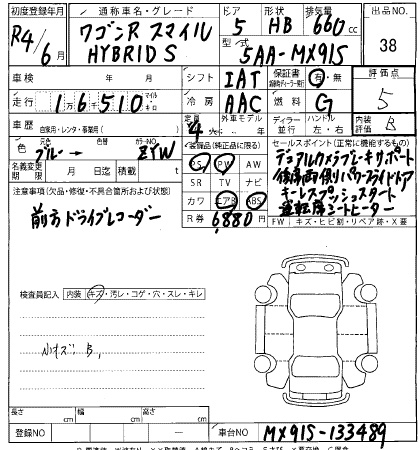 初度登録年月 通称車名・グレード ドア 形状 排気量 出品NO.
R4/6月 ワゴンR スマイル HYBRID S 5 HB 660cc 38
型式 5AA-MX91S
車検 年 月 シフト IAT 保証書 有・無 評価点
走行 16510 マイル キロ 冷房 AAC 燃料 G 5
車歴 自家用・レンタ・事業用( ) 定員 4人 外車モデル 年 ディーラー 並行 ハンドル 左・右 内装評価 B
色 元色 ブルー 色替 カラーNO. ZYW 装備品(純正品に限る) セールスポイント(正常に機能するもの)
名義変更期限 月 日迄 積載 t PS PW AW デュアルカメラブレーキサポート
注意事項(欠品・修復・不具合箇所および状態) SR TV ナビ 後席両側パワースライドドア
前方ドライブレコーダー カワ エアB ABS キーレスプッシュスタート
R券 6,880円 運転席シートヒーター
FW キズ・ヒビ割・リペア跡・X要
検査員記入 内装 キズ・汚レ・コゲ・穴・スレ・キレ
小キズ B
長さ cm 幅 cm 高さ cm
登録NO 車台NO MX91S-133489